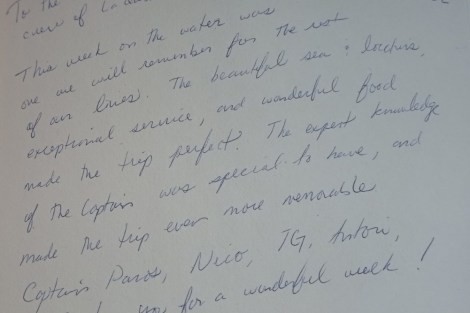 To the
crew of
This week on the water was
one we will remember for the rest
of our lives. The beautiful sea &
exceptional service, and wonderful food
made the trip perfect. The expert knowledge
of the Captain was special to have, and
made the trip even more memorable
Captain Paros, Nico, TG,
you for a wonderful week!